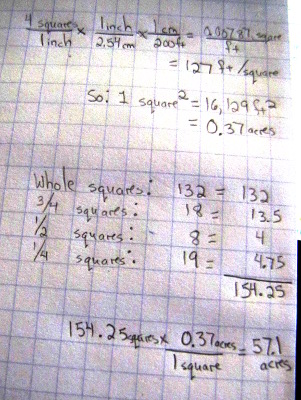 4 squares/1 inch × 1 inch/2.54 cm × 1 cm/200 ft = 0.00787 square/ft
= 127 ft/square
So: 1 square² = 16,129 ft²
= 0.37 acres
Whole squares: 132 = 132
3/4 squares: 18 = 13.5
1/2 squares: 8 = 4
1/4 squares: 19 = 4.75
154.25
154.25 squares × 0.37 acres/1 square = 57.1 acres